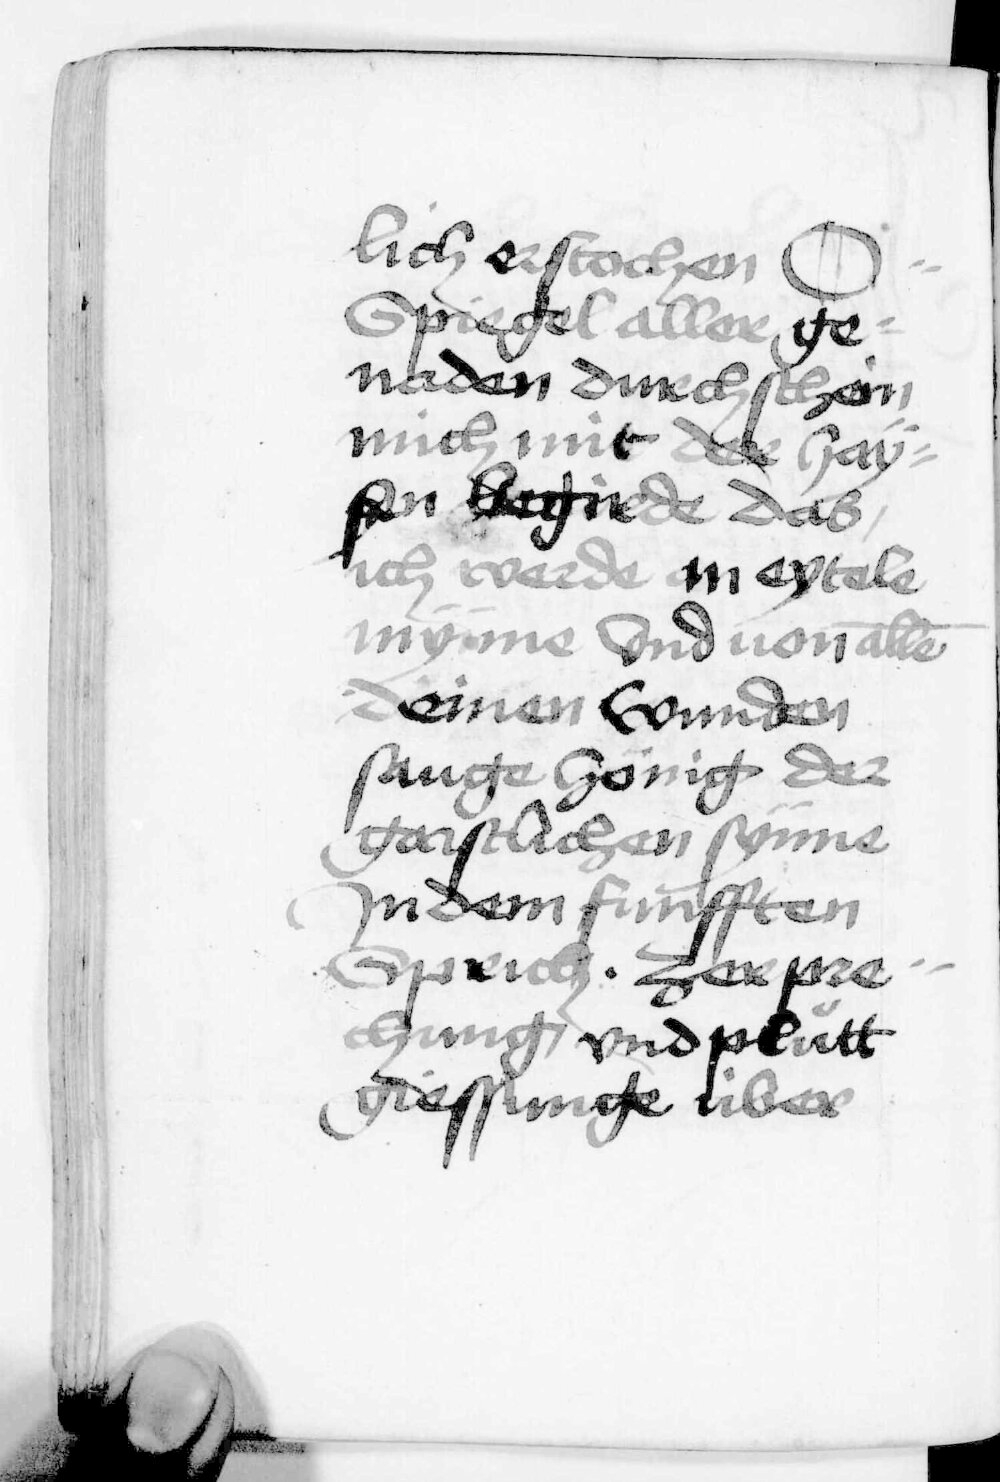 lich erstochen O
Spiegel aller ge=
naden durchschein
mich mit der hay=
sen begirde das
ich werde in eytele
mÿnne vnd uon alle
deinen Wunden
sauge honig der
gaistlichen sÿnne
In dem funfften
Spruch. Zerpre=
chung vnd plůtt
giessunge uber